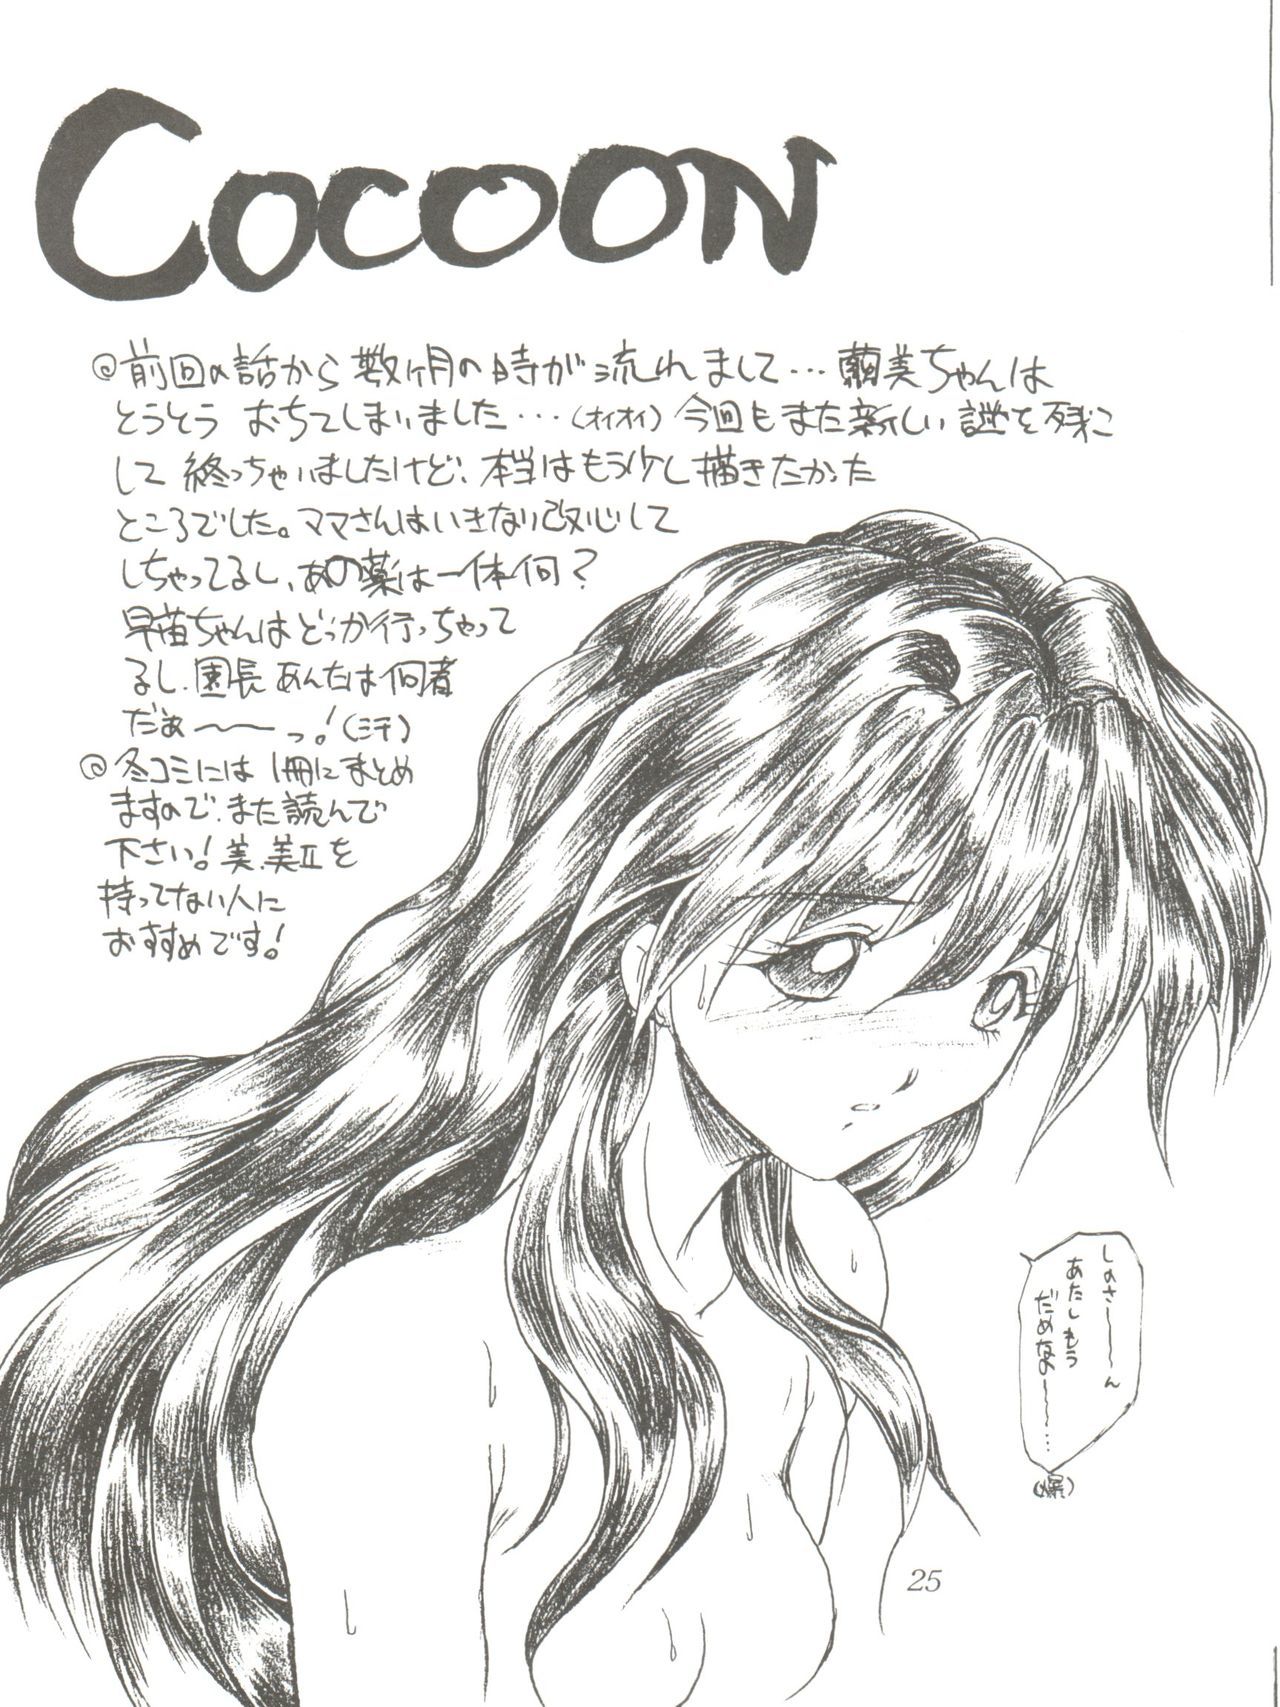 COCOON
@前回の話から数ヶ月の時が流れまして…繭美ちゃんは
とうとう おちてしまいました…(オイオイ)今回もまた新しい謎を残こ
して 終っちゃいましたけど、本当はもう少し描きたかった
ところでした。ママさんはいきなり改心して
しちゃってるし、あの薬は一体何?
早苗ちゃんはどっか行っちゃって
るし、園長 あんたは何者
だぁ〜〜っ!(汗)
@冬コミには1冊にまとめ
ますので、また読んで
下さい!美、美IIを
持ってない人に
おすすめです!
しょさ〜〜ん
あたしもう
だめなの〜〜…
(爆)
25